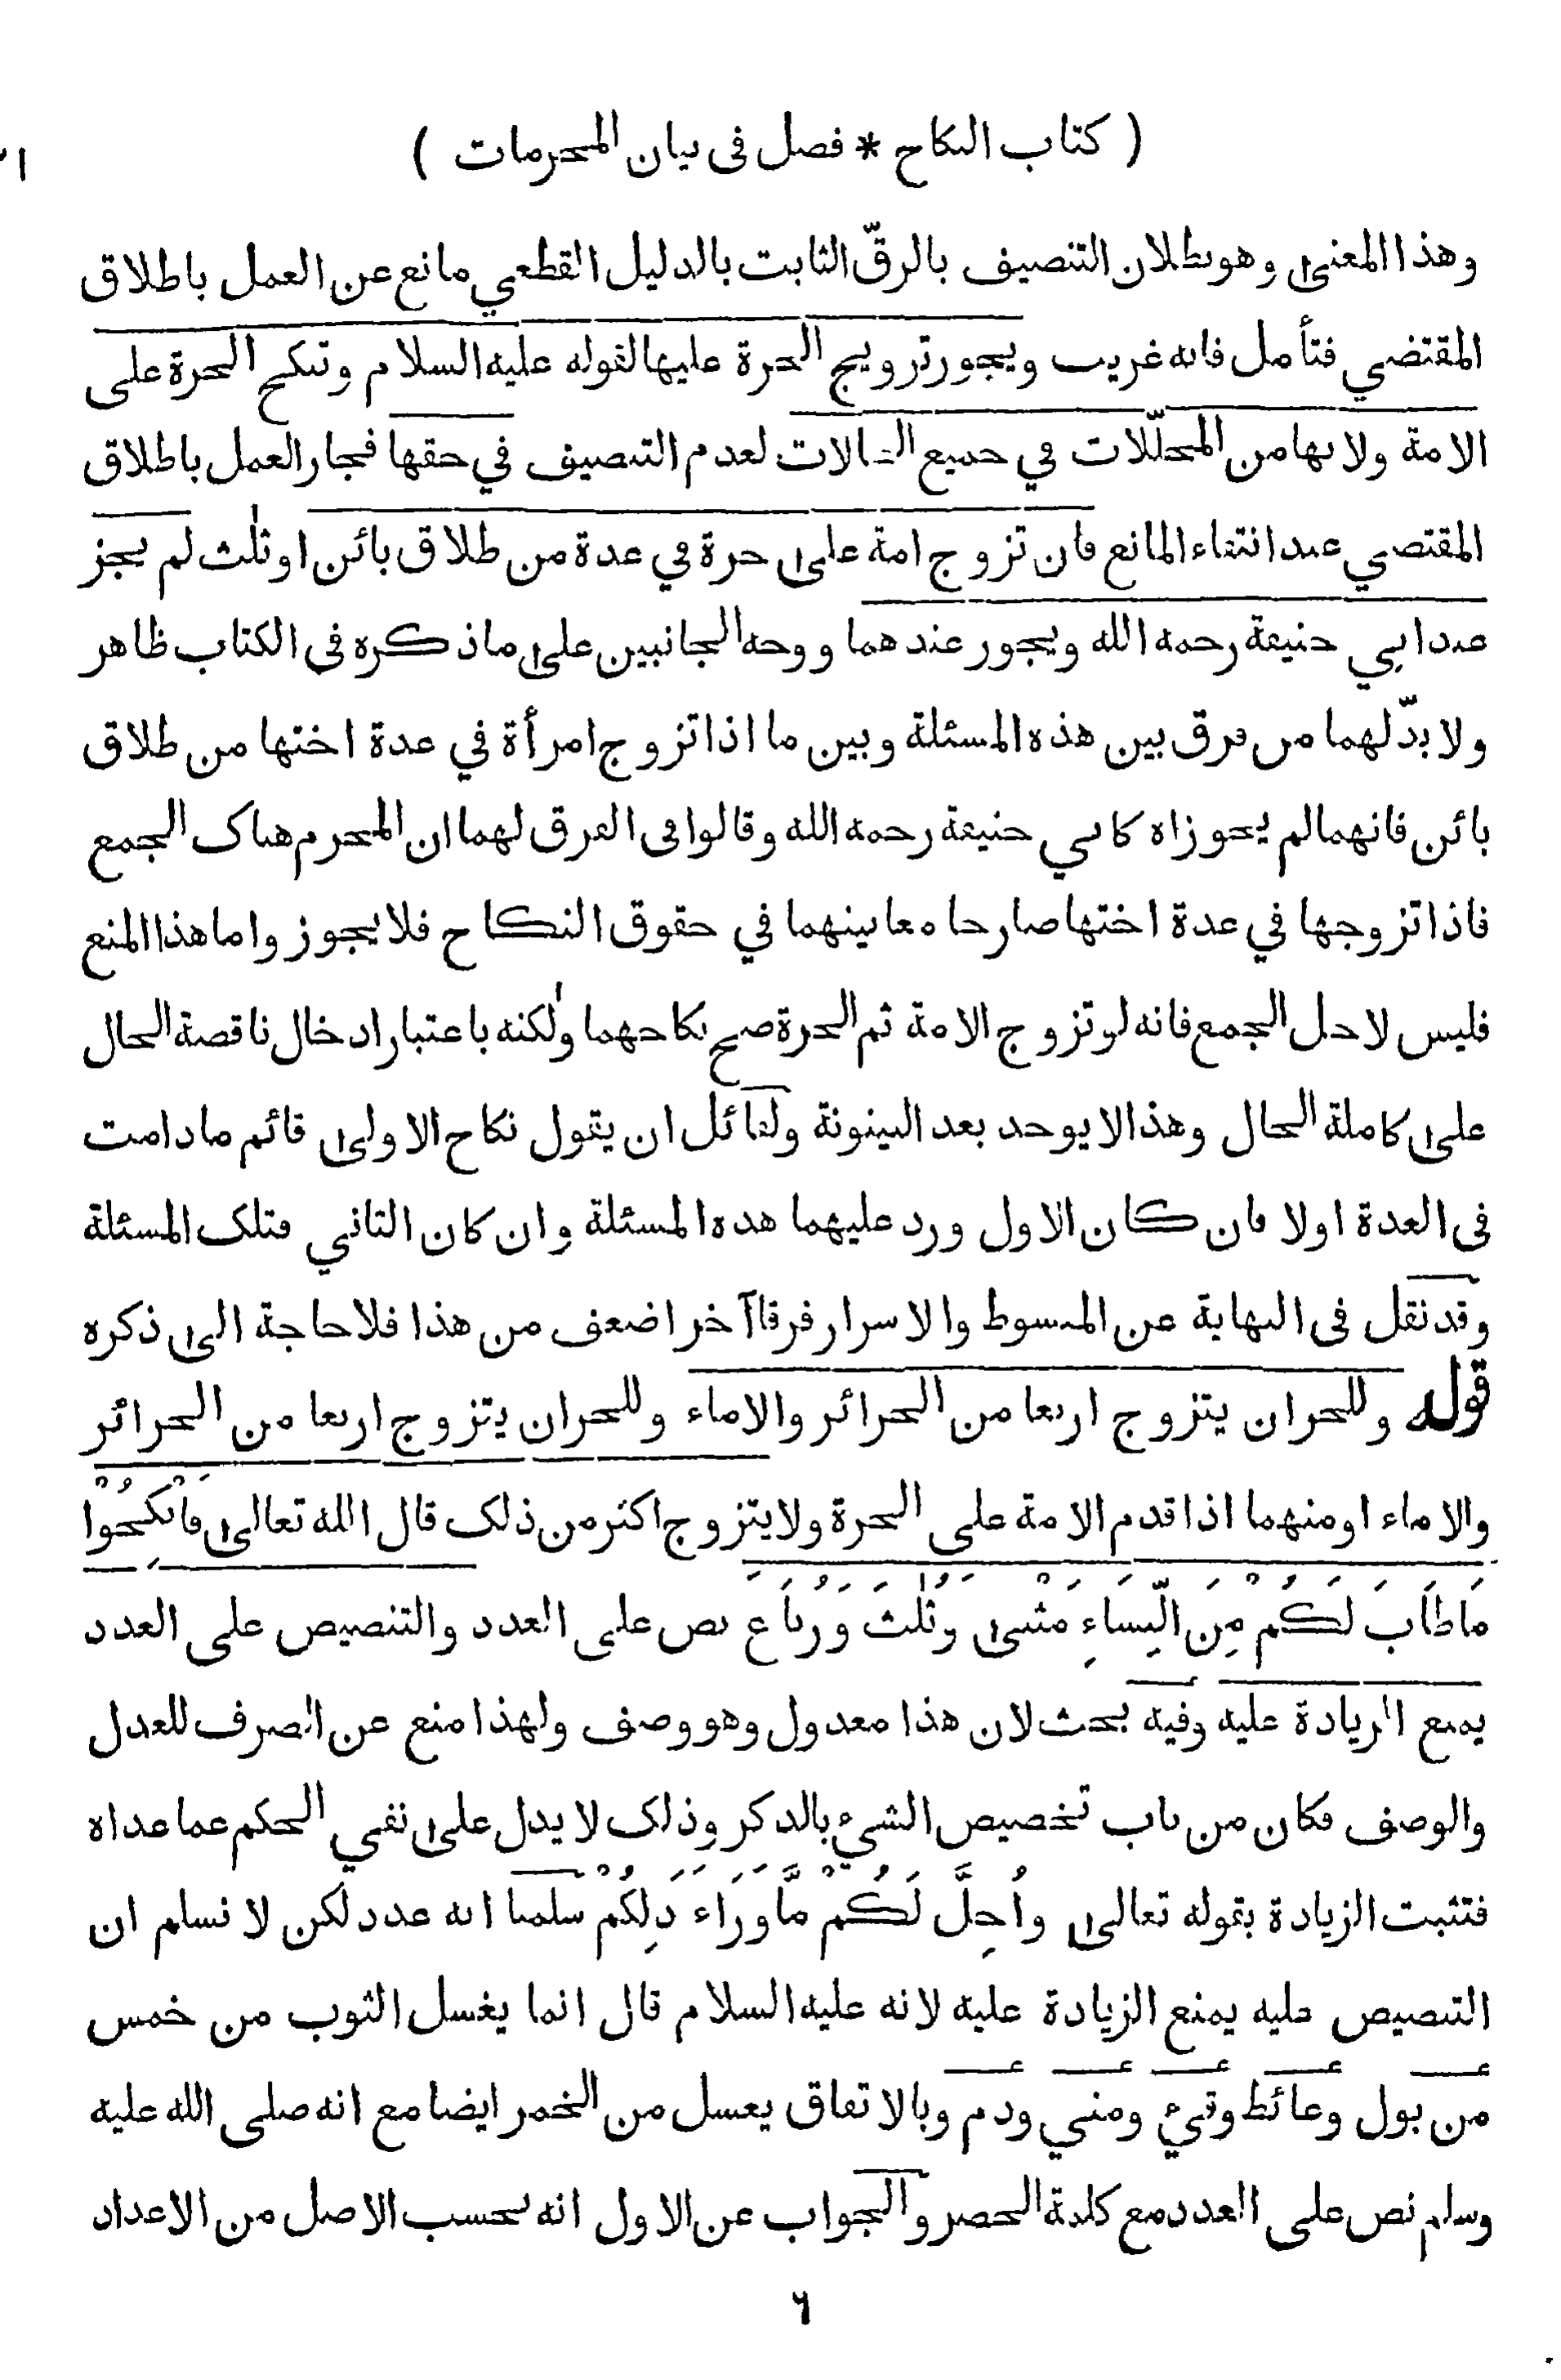 ( كتاب النكاح * فصل فى بيان المحرمات )
وهذا المعنى وهو بطلان التنصيف بالرقّ الثابت بالدليل القطعي مانع عن العمل باطلاق
المقتضي فتأمل فانه غريب ويجوز تزويج الحرة عليها لقوله عليه السلام وتنكح الحرة على
الامة ولانها من المحلّلات في جميع الحالات لعدم التنصيف في حقها فجاز العمل باطلاق
المقتضي عند انتفاء المانع فان تزوج امة على حرة في عدة من طلاق بائن او ثلٰث لم يجز
عند ابي حنيفة رحمه الله ويجوز عندهما ووجه الجانبين على ما ذكره فى الكتاب ظاهر
ولا بدّ لهما من فرق بين هذه المسئلة وبين ما اذا تزوج امرأة في عدة اختها من طلاق
بائن فانهما لم يجوزاه كابي حنيفة رحمه الله وقالوا فى الفرق لهما ان المحرم هناك الجمع
فاذا تزوجها في عدة اختها صار جامعا بينهما في حقوق النكاح فلا يجوز واما هذا المنع
فليس لاجل الجمع فانه لو تزوج الامة ثم الحرة صح نكاحهما ولٰكنه باعتبار ادخال ناقصة الحال
على كاملة الحال وهذا لا يوجد بعد البينونة ولقائل ان يقول نكاح الاولى قائم ما دامت
فى العدة اولا فان كان الاول ورد عليهما هذه المسئلة وان كان الثاني فتلك المسئلة
وقد نقل فى النهاية عن المبسوط والاسرار فرقا آخر اضعف من هذا فلا حاجة الى ذكره
قوله وللحر ان يتزوج اربعا من الحرائر والاماء وللحر ان يتزوج اربعا من الحرائر
والاماء او منهما اذا قدم الامة على الحرة ولا يتزوج اكثر من ذلك قال الله تعالى فَانْكِحُوْا
مَا طَابَ لَكُمْ مِنَ النِّسَاءِ مَثْنى وَثُلٰثَ وَرُبَاعَ نص على العدد والتنصيص على العدد
يمنع الزيادة عليه وفيه بحث لان هذا معدول وهو وصف ولهذا منع عن الصرف للعدل
والوصف فكان من باب تخصيص الشيء بالذكر وذلك لا يدل على نفي الحكم عما عداه
فتثبت الزيادة بقوله تعالى وَاُحِلَّ لَكُمْ مَّا وَرَاءَ ذَلِكُمْ سلمنا انه عدد لكن لا نسلم ان
التنصيص عليه يمنع الزيادة عليه لانه عليه السلام قال انما يغسل الثوب من خمس
من بول وغائط وقيء ومني ودم وبالاتفاق يغسل من الخمر ايضا مع انه صلى الله عليه
وسلم نص على العدد مع كلمة الحصر والجواب عن الاول انه بحسب الاصل من الاعداد